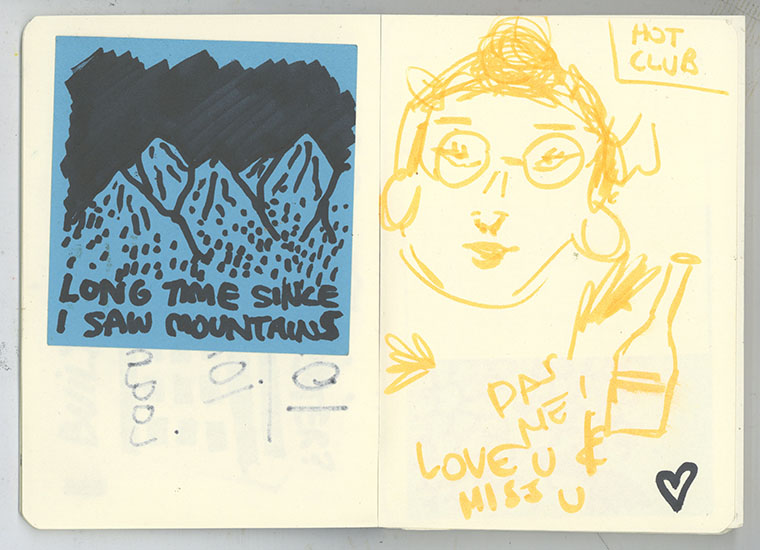 LONG TIME SINCE
I SAW MOUNTAINS
HOT
CLUB
LOVE U &
MISS U